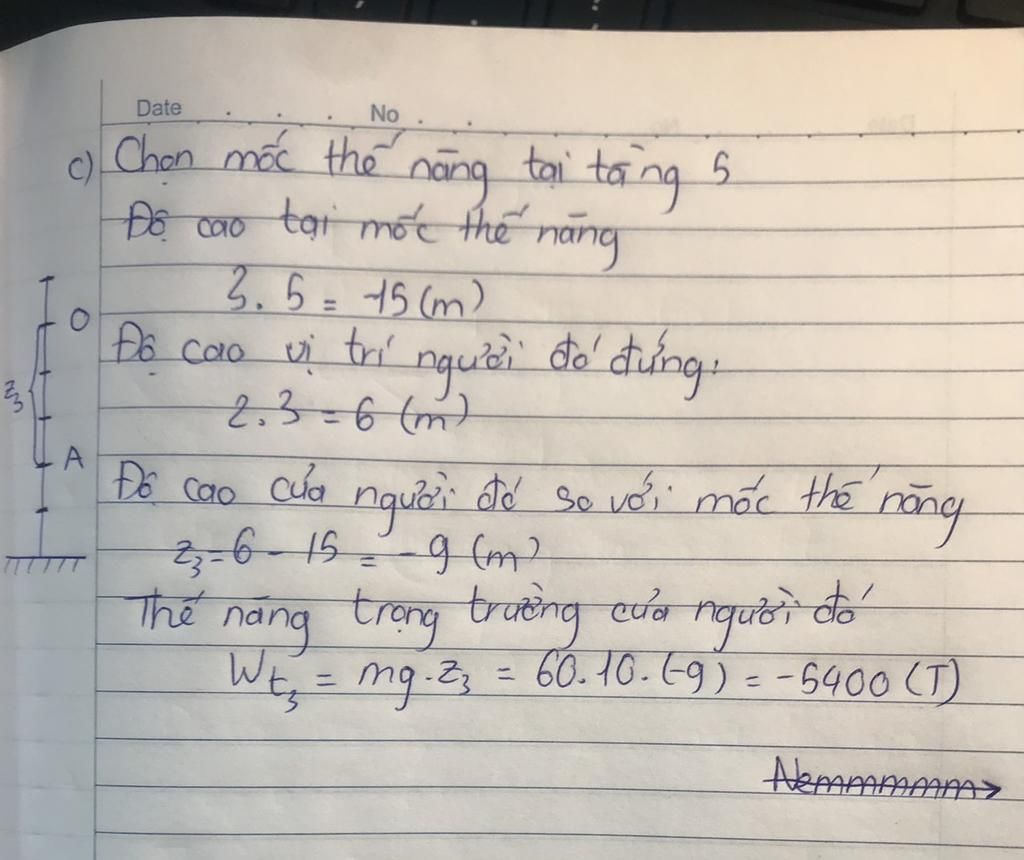 Date . . . . No . . .
c) Chọn mốc thế năng tại tầng 5
Độ cao tại mốc thế năng
3. 5 = 15 (m)
O
Độ cao vị trí người đó đứng:
z₃
2.3 = 6 (m)
A
Độ cao của người đó so với mốc thế năng
z₃ = 6 - 15 = -9 (m)
Thế năng trọng trường của người đó
Wt₃ = mg.z₃ = 60.10.(-9) = -5400 (J)